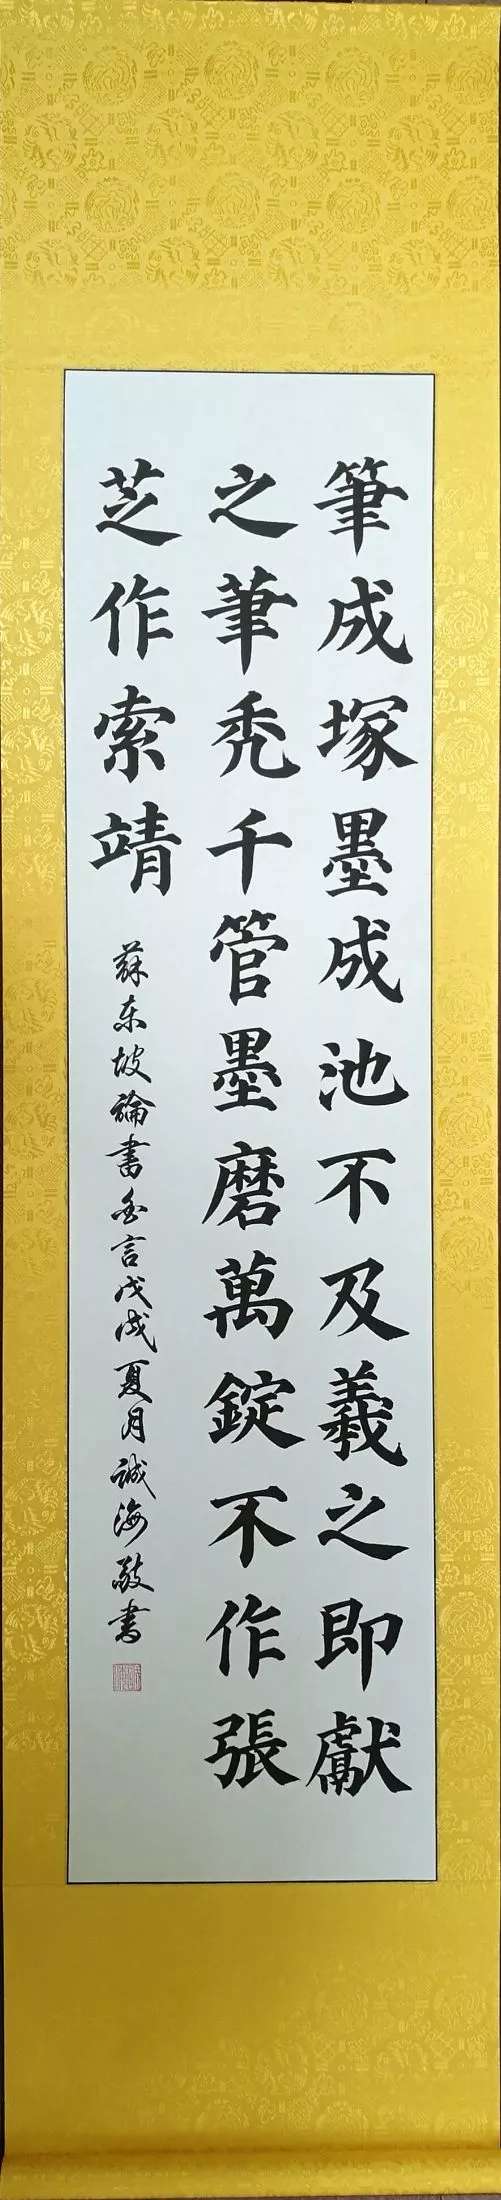 筆成塚墨成池不及羲之即獻
之筆禿千管墨磨萬錠不作張
芝作索靖
蘇东坡論書名言戊戌夏月誠海敬書